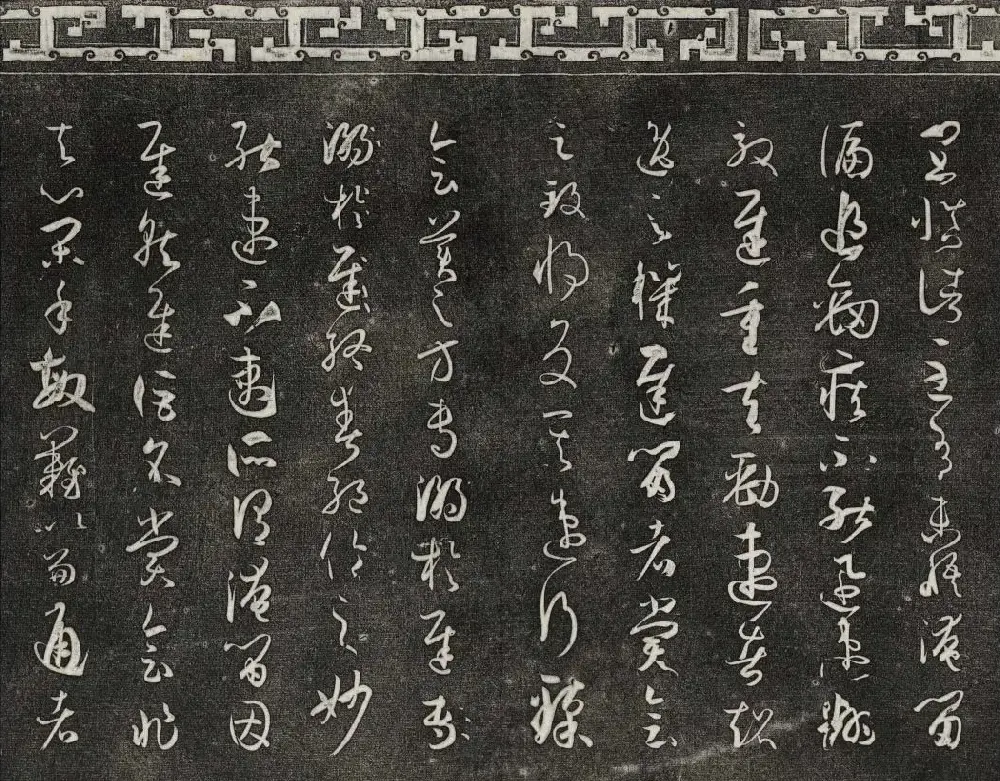 尤宜慎諸至有未悟淹留
偏追勁疾不能迅速翻
效遲重夫勁速者超
逸之機遲留者賞會
之致將反其速行臻
會美之方專溺於遲專
溺於遲終爽絕倫之妙
能速不速所謂淹留因
遲就遲詎名賞會非
夫心閑手敏難以兼通者